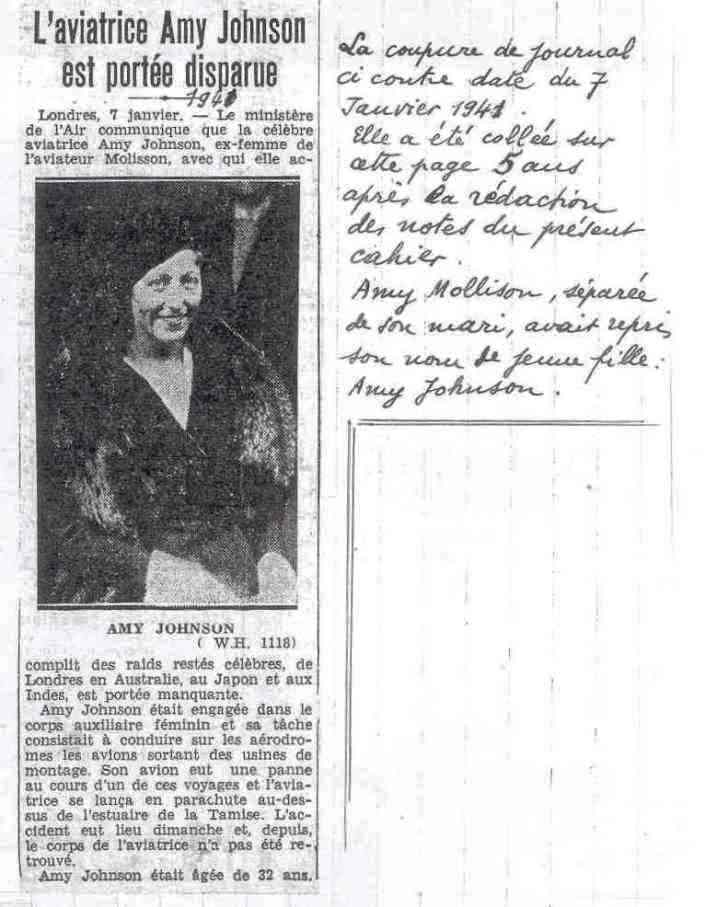 L'aviatrice Amy Johnson
est portée disparue
1941
Londres, 7 janvier. — Le ministère
de l'Air communique que la célèbre
aviatrice Amy Johnson, ex-femme de
l'aviateur Molisson, avec qui elle ac-
AMY JOHNSON
( W.H. 1118)
complit des raids restés célèbres, de
Londres en Australie, au Japon et aux
Indes, est portée manquante.
Amy Johnson était engagée dans le
corps auxiliaire féminin et sa tâche
consistait à conduire sur les aérodro-
mes les avions sortant des usines de
montage. Son avion eut une panne
au cours d'un de ces voyages et l'avia-
trice se lança en parachute au-des-
sus de l'estuaire de la Tamise. L'ac-
cident eut lieu dimanche et, depuis,
le corps de l'aviatrice n'a pas été re-
trouvé.
Amy Johnson était âgée de 32 ans.
La coupure de journal
ci contre date du 7
Janvier 1941.
Elle a été collée sur
cette page 5 ans
après la rédaction
des notes du présent
cahier.
Amy Mollison, séparée
de son mari, avait repris
son nom de jeune fille :
Amy Johnson.